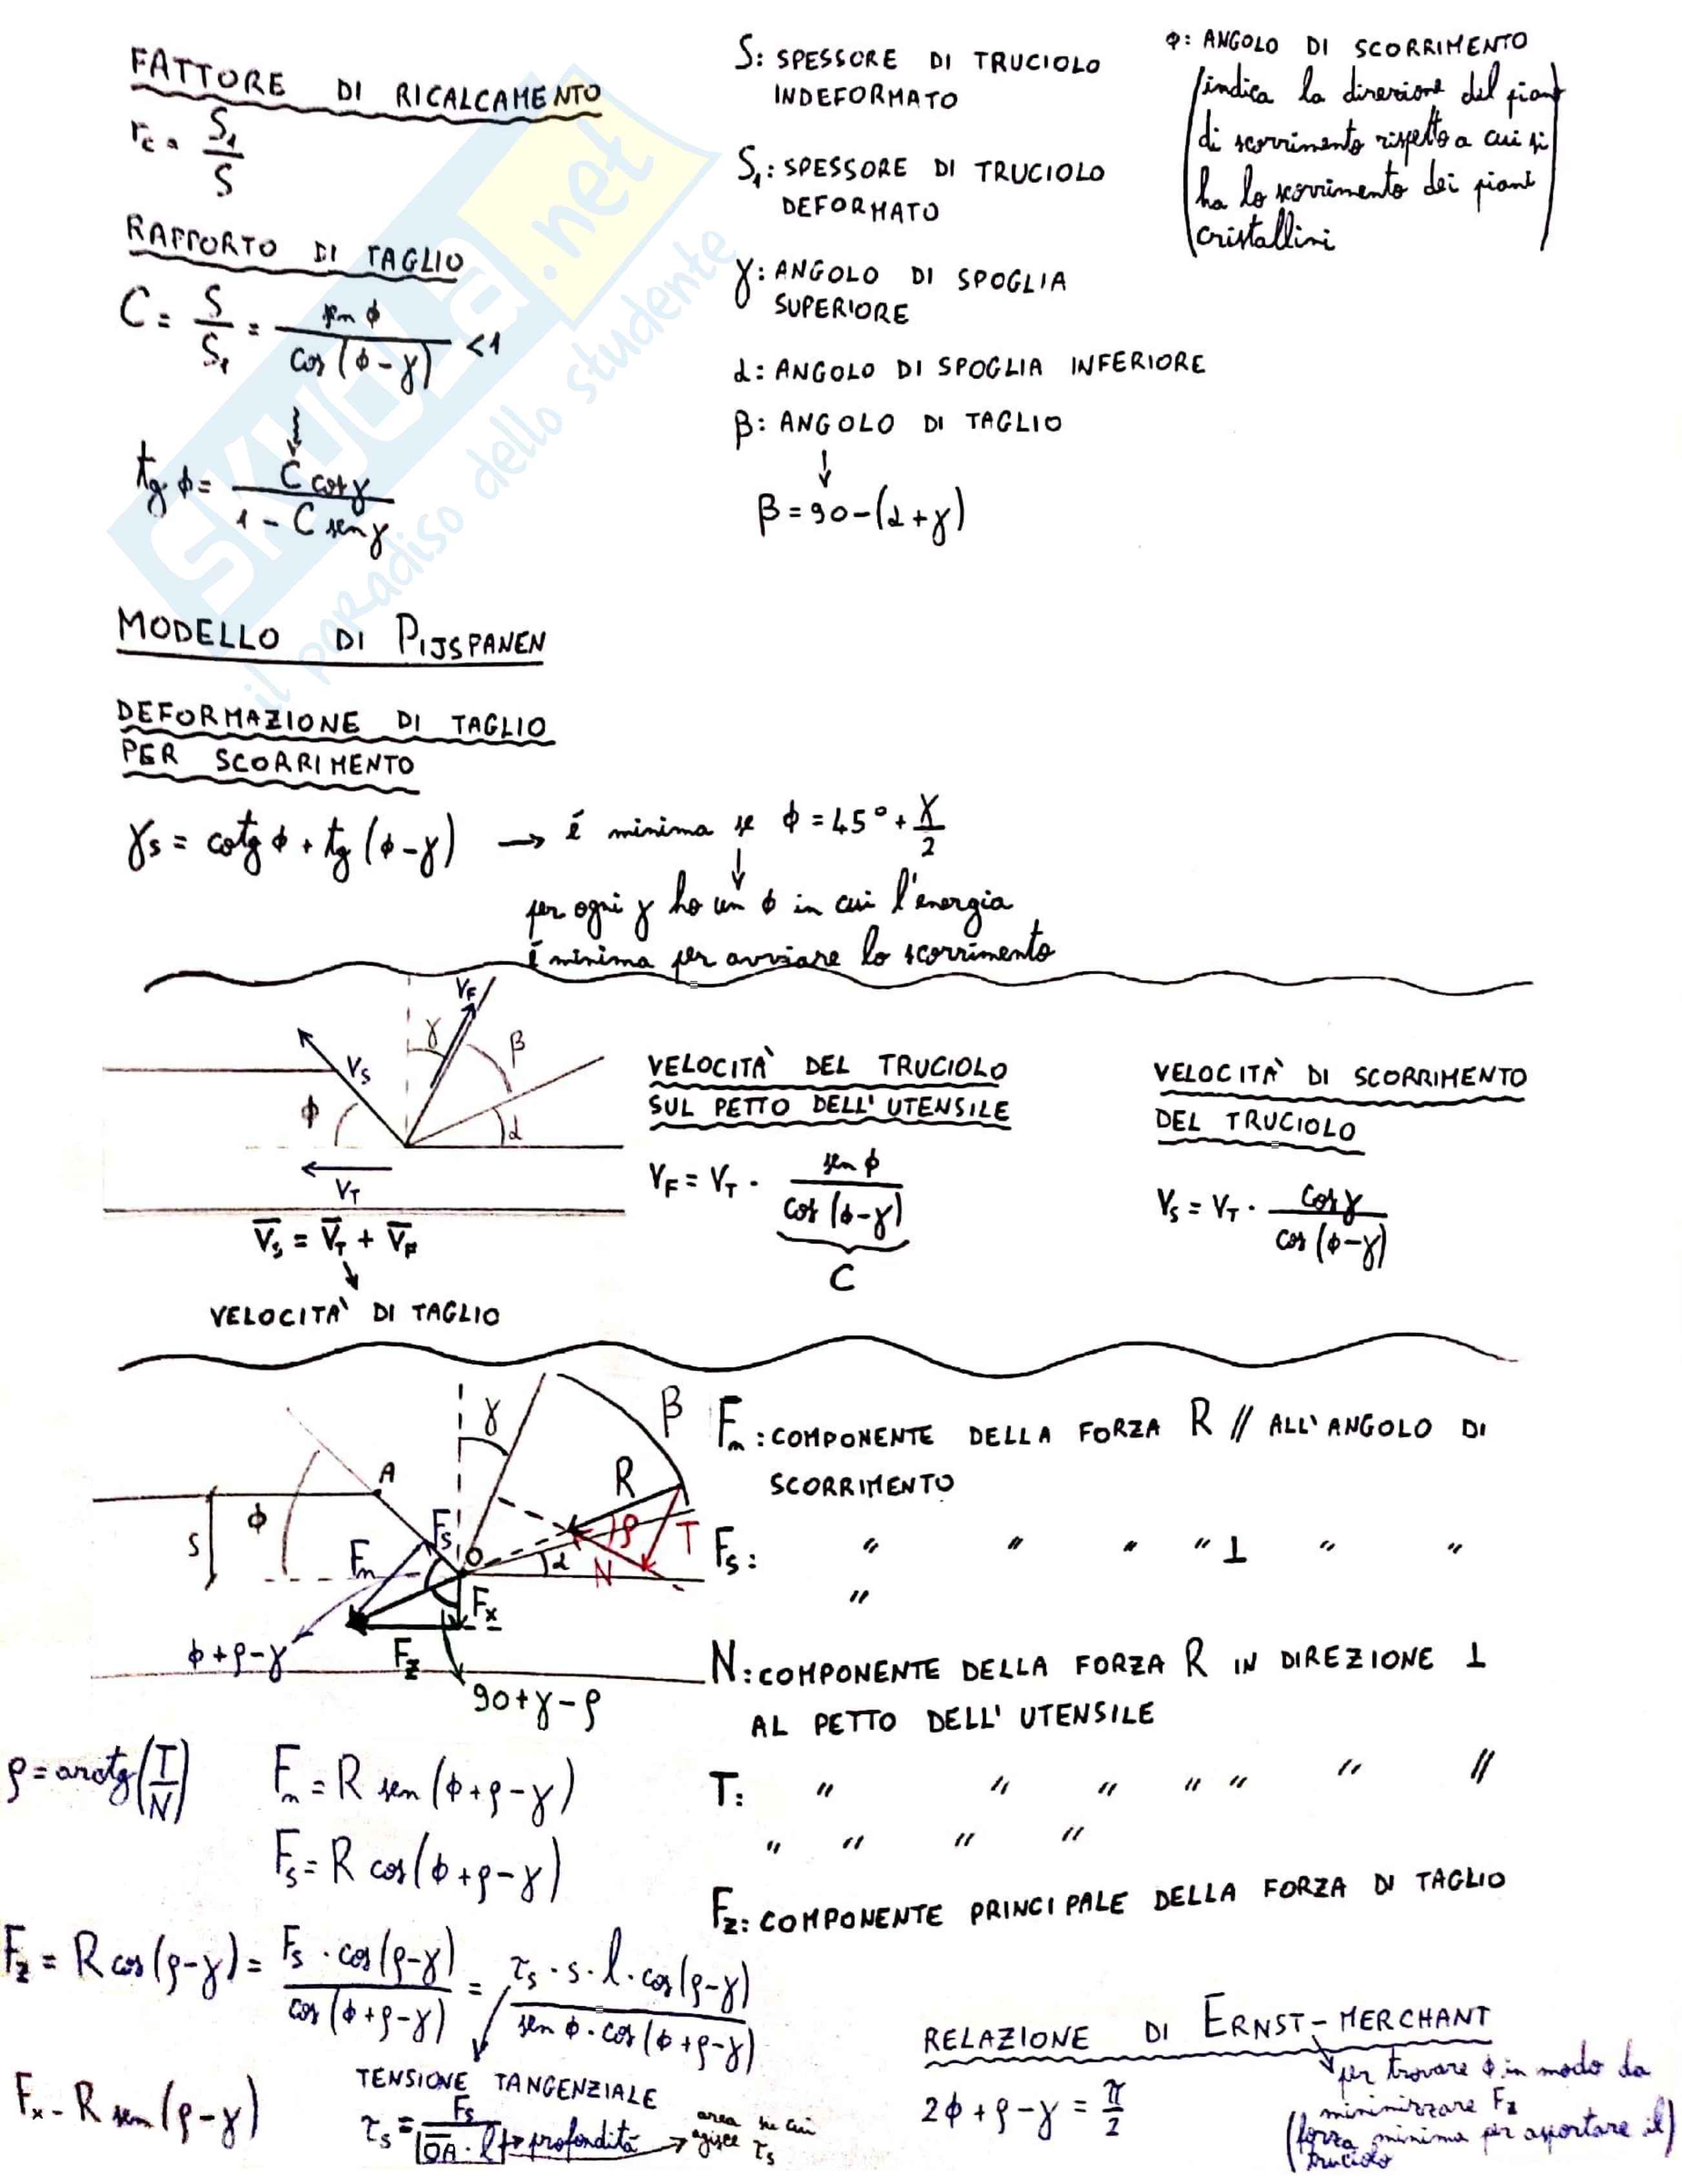 FATTORE DI RICALCAMENTO
r_c = S₁/S
RAPPORTO DI TAGLIO
C = S/S₁ = sen ϕ / cos (ϕ-γ) <1
tg ϕ = C cos γ / 1 - C sen γ
S: SPESSORE DI TRUCIOLO
INDEFORMATO
S₁: SPESSORE DI TRUCIOLO
DEFORMATO
γ: ANGOLO DI SPOGLIA
SUPERIORE
α: ANGOLO DI SPOGLIA INFERIORE
β: ANGOLO DI TAGLIO
↓
β = 90-(α+γ)
ϕ: ANGOLO DI SCORRIMENTO
(indica la direzione del piano
di scorrimento rispetto a cui si
ha lo scorrimento dei piani
cristallini)
SKUOLA.net
il paradiso dello studente
MODELLO DI PIJSPANEN
DEFORMAZIONE DI TAGLIO
PER SCORRIMENTO
γs = cotg ϕ + tg (ϕ-γ) → é minima se ϕ = 45° + γ/2
↓
per ogni γ ho un ϕ in cui l'energia
é minima per avviare lo scorrimento
V_F
γ
β
V_S
ϕ
α
V_T
V̅_S = V̅_T + V̅_F
VELOCITA' DI TAGLIO
VELOCITÀ DEL TRUCIOLO
SUL PETTO DELL' UTENSILE
V_F = V_T · sen ϕ / cos (ϕ-γ)
C
VELOCITÀ DI SCORRIMENTO
DEL TRUCIOLO
V_S = V_T · cos γ / cos (ϕ-γ)
γ
β
A
R
S
ϕ
F_s
O
ρ
T
F_n
α
N
F_x
ϕ+ρ-γ
F_z
90+γ-ρ
F_n: COMPONENTE DELLA FORZA R // ALL'ANGOLO DI
SCORRIMENTO
F_s: " " " " ⊥ " "
"
N: COMPONENTE DELLA FORZA R IN DIREZIONE ⊥
AL PETTO DELL' UTENSILE
T: " " " " " " //
" " " "
F_z: COMPONENTE PRINCIPALE DELLA FORZA DI TAGLIO
ρ = arctg (T/N)
F_n = R sen (ϕ+ρ-γ)
F_s = R cos (ϕ+ρ-γ)
F_z = R cos (ρ-γ) = F_s · cos (ρ-γ) / cos (ϕ+ρ-γ) = τ_s · s · l · cos (ρ-γ) / sen ϕ · cos (ϕ+ρ-γ)
TENSIONE TANGENZIALE
F_x = R sen (ρ-γ)
τ_s = F_s / O̅A̅ · l → profondità → area su cui agisce τ_s
RELAZIONE DI ERNST-MERCHANT
2ϕ + ρ - γ = π/2
per trovare ϕ in modo da
minimizzare F_z
(forza minima per asportare il
truciolo)